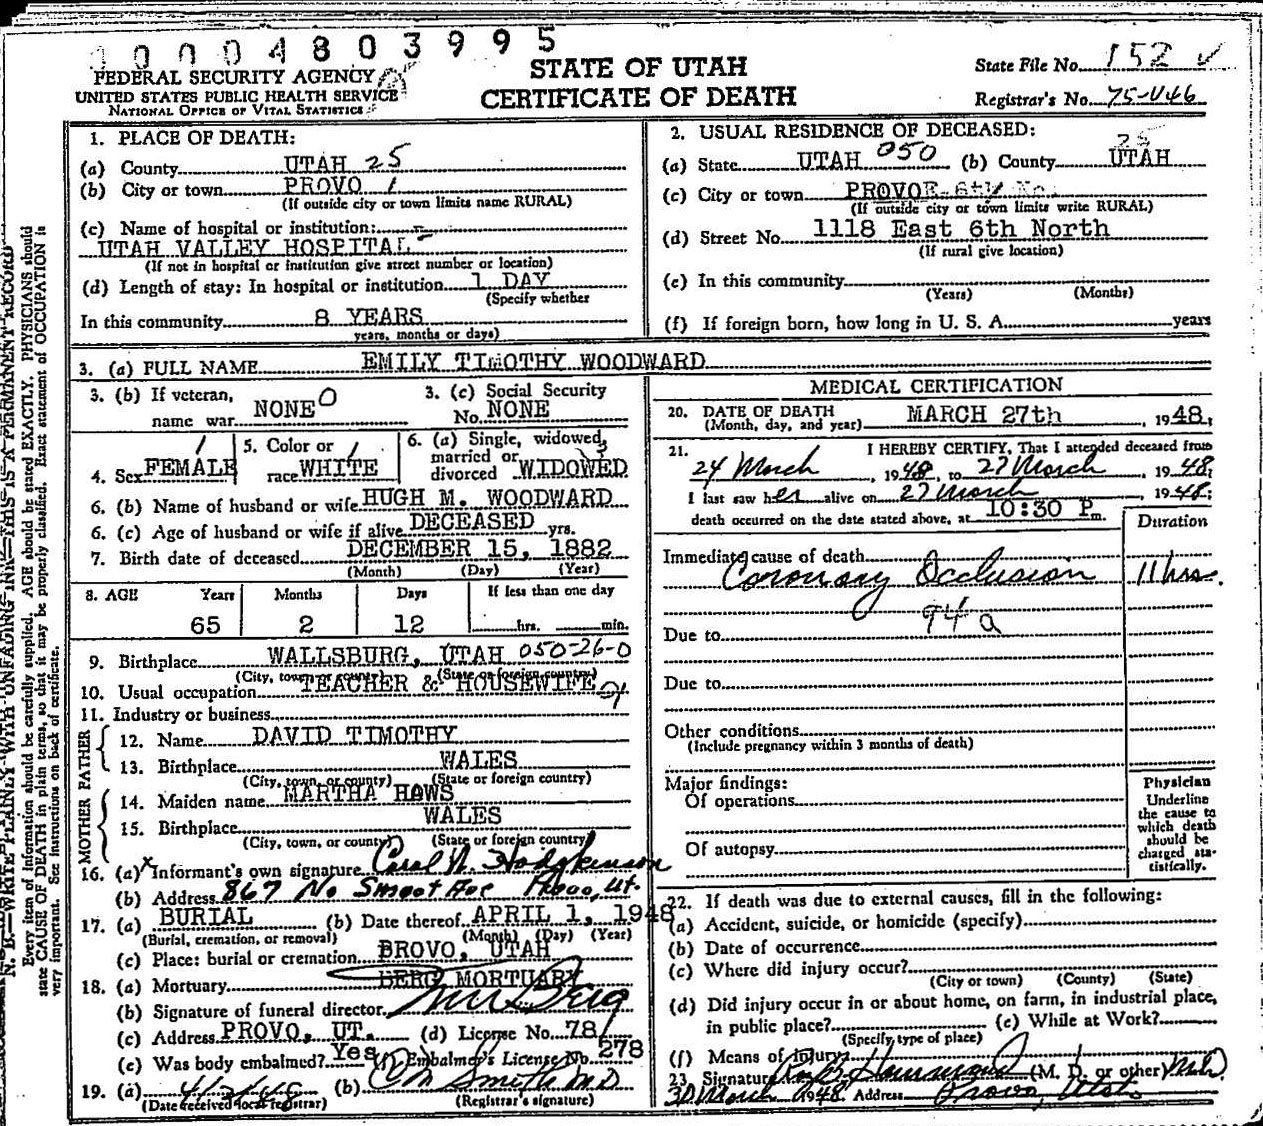 0 0 0 0 4 8 0 3 9 9 5
FEDERAL SECURITY AGENCY
UNITED STATES PUBLIC HEALTH SERVICE
NATIONAL OFFICE OF VITAL STATISTICS
STATE OF UTAH
CERTIFICATE OF DEATH
State File No. 152 ✓
Registrar's No. 75-V46
1. PLACE OF DEATH:
(a) County UTAH 25
(b) City or town PROVO 1
(If outside city or town limits name RURAL)
(c) Name of hospital or institution:
UTAH VALLEY HOSPITAL
(If not in hospital or institution give street number or location)
(d) Length of stay: In hospital or institution 1 DAY
(Specify whether
In this community 8 YEARS
years, months or days)
2. USUAL RESIDENCE OF DECEASED:
25
(a) State UTAH 050 (b) County UTAH
(c) City or town PROVO
(If outside city or town limits write RURAL)
(d) Street No. 1118 East 6th North
(If rural give location)
(e) In this community
(Years) (Months)
(f) If foreign born, how long in U. S. A. years
3. (a) FULL NAME EMILY TIMOTHY WOODWARD
3. (b) If veteran,
name war NONE 0
3. (c) Social Security
No. NONE
4. Sex FEMALE 1
5. Color or
race WHITE 1
6. (a) Single, widowed,
married or
divorced WIDOWED
6. (b) Name of husband or wife HUGH M. WOODWARD
6. (c) Age of husband or wife if alive DECEASED yrs.
7. Birth date of deceased DECEMBER 15, 1882
(Month) (Day) (Year)
8. AGE Years Months Days If less than one day
65 2 12 hrs. min.
9. Birthplace WALLSBURG, UTAH 050-26-0
(City, town or county) (State or foreign country)
10. Usual occupation TEACHER & HOUSEWIFE
11. Industry or business
FATHER
12. Name DAVID TIMOTHY
13. Birthplace WALES
(City, town, or county) (State or foreign country)
MOTHER
14. Maiden name MARTHA HAWS
15. Birthplace WALES
(City, town, or county) (State or foreign country)
16. (a) x Informant's own signature Carol W. Hodgkinson
(b) Address 867 No Smoot Ave Provo, Ut.
17. (a) BURIAL (b) Date thereof APRIL 1, 1948
(Burial, cremation, or removal) (Month) (Day) (Year)
(c) Place: burial or cremation PROVO, UTAH
18. (a) Mortuary BERG MORTUARY
(b) Signature of funeral director Berg
(c) Address PROVO, UT. (d) License No. 78
(e) Was body embalmed? Yes (f) Embalmer's License No. 278
19. (a) (b) Smith M.D.
(Date received local registrar) (Registrar's signature)
MEDICAL CERTIFICATION
20. DATE OF DEATH
(Month, day, and year) MARCH 27th, 1948;
21. I HEREBY CERTIFY, That I attended deceased from
24 March, 1948, to 27 March, 1948;
I last saw her alive on 27 March, 1948;
death occurred on the date stated above, at 10:30 P.m.
Duration
Immediate cause of death
Coronary Occlusion 11 hrs.
94 a
Due to
Due to
Other conditions
(Include pregnancy within 3 months of death)
Major findings:
Of operations
Of autopsy
Physician
Underline
the cause to
which death
should be
charged sta-
tistically.
22. If death was due to external causes, fill in the following:
(a) Accident, suicide, or homicide (specify)
(b) Date of occurrence
(c) Where did injury occur?
(City or town) (County) (State)
(d) Did injury occur in or about home, on farm, in industrial place,
in public place? (e) While at Work?
(Specify type of place)
(f) Means of Injury
23. Signature (M. D. or other) M.D.
30 March 1948 Address Provo, Utah
N. B.—WRITE PLAINLY WITH UNFADING INK—THIS IS A PERMANENT RECORD
Every item of information should be carefully supplied. AGE should be stated EXACTLY. PHYSICIANS should
state CAUSE OF DEATH in plain terms, so that it may be properly classified. Exact statement of OCCUPATION is
very important. See instructions on back of certificate.